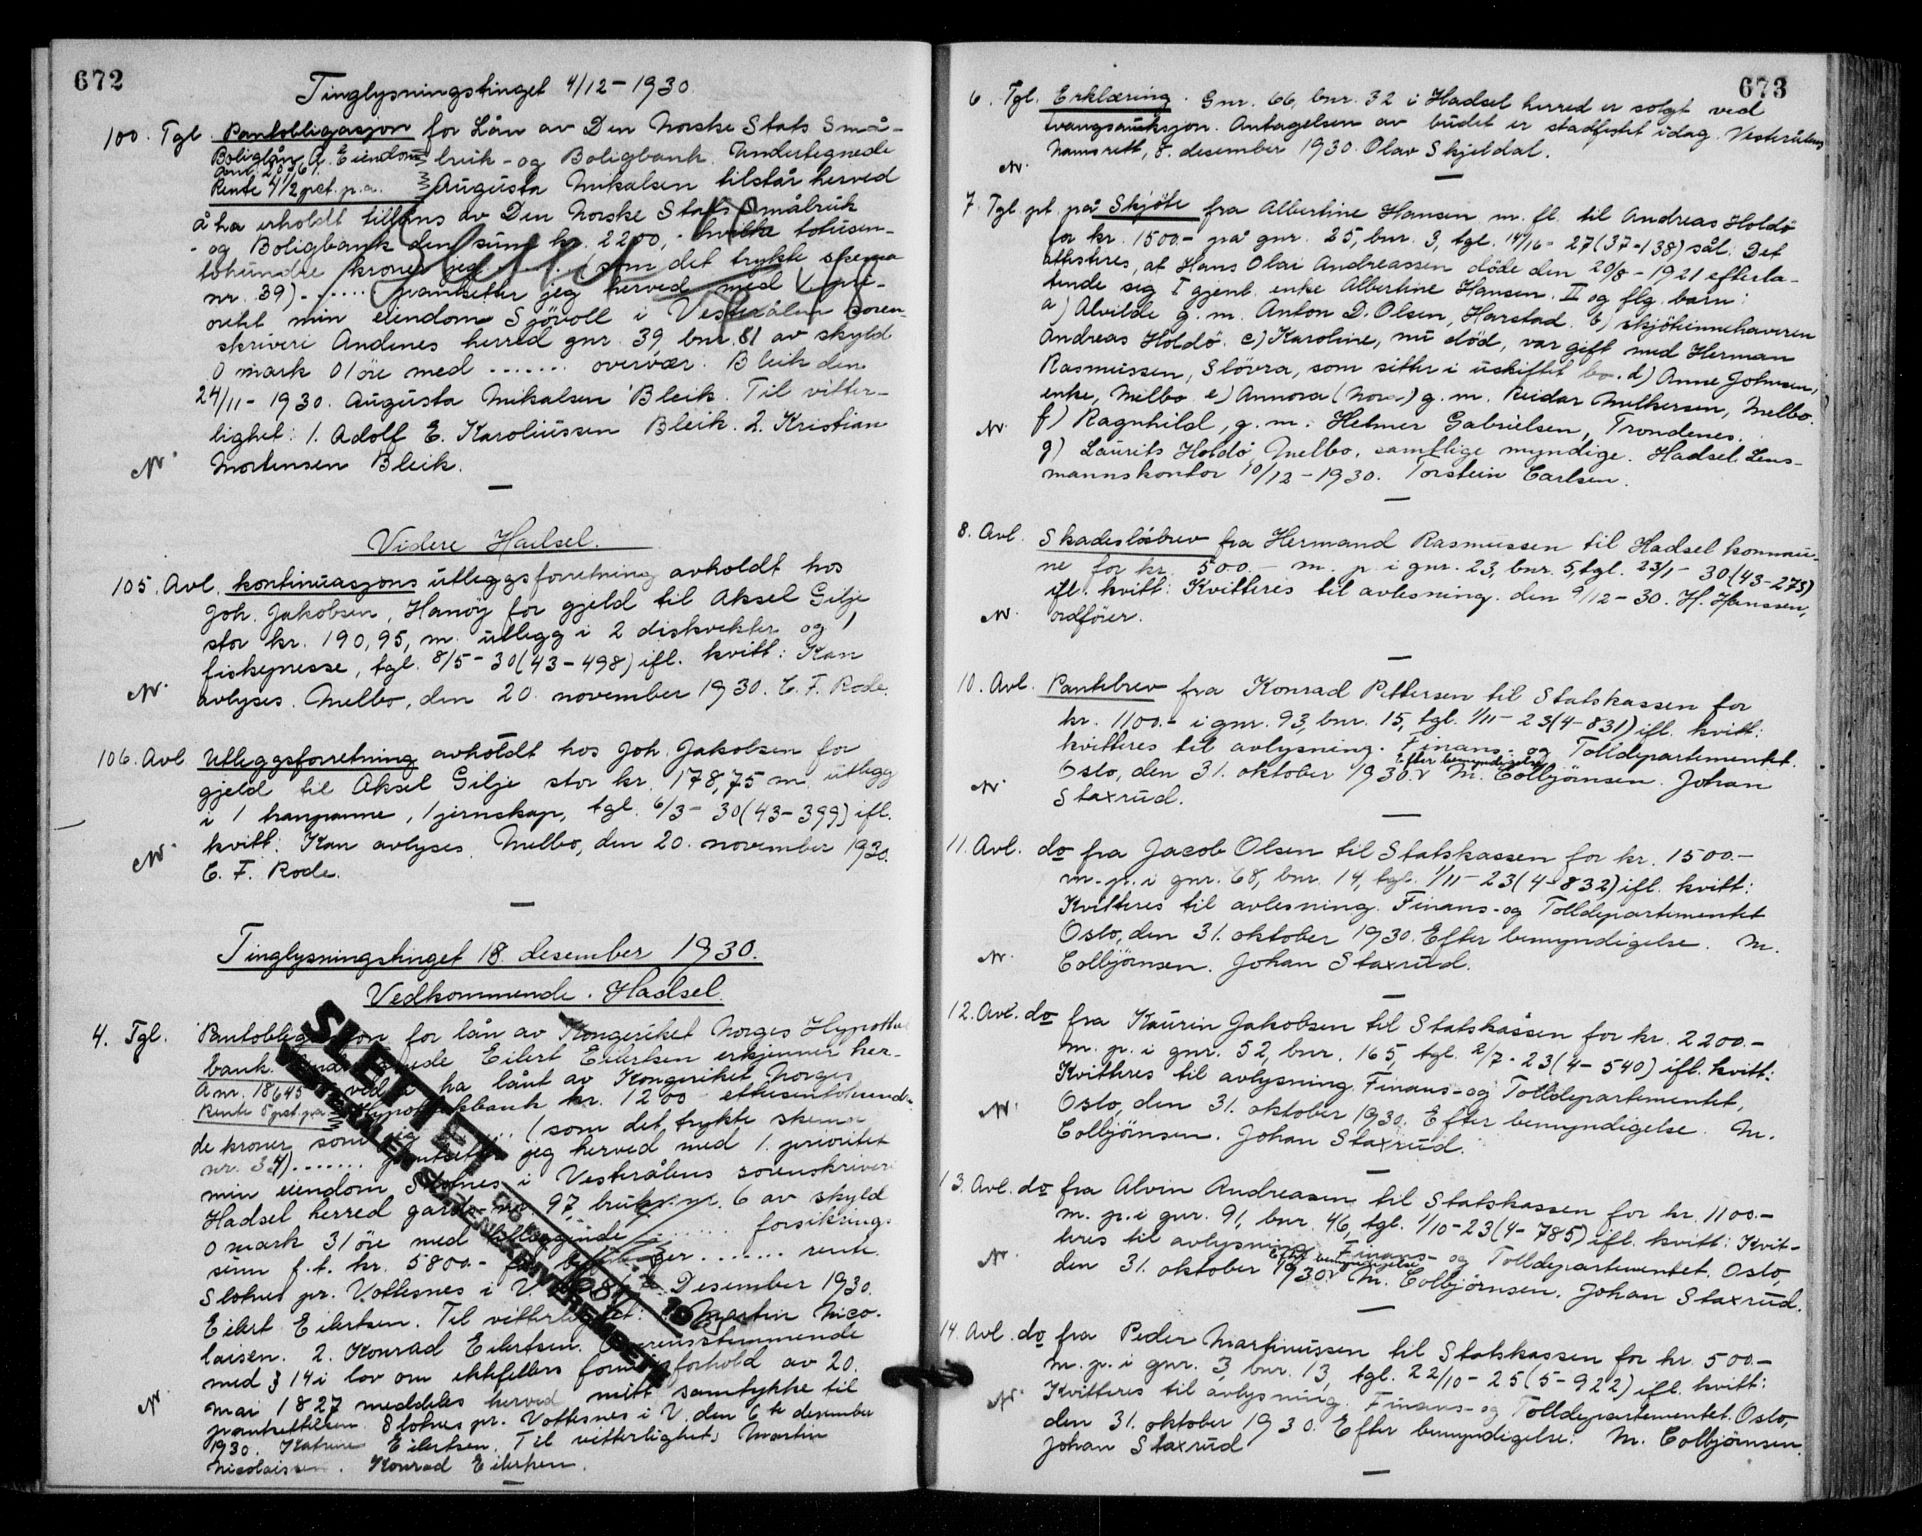 672
Tinglysningstinget 4/12-1930
100. Tgl. Pantobligasjon for Lån av Den Norske Stats Små-
Boliglån A. Eiendom bruk- og Boligbank. Undertegnede
Rente 4 1/2 pct. p.a. Augusta Mikalsen tilstår herved
å ha erholdt tillåns av Den Norske Stats Småbruk
- og Boligbank den sum kr. 2200,- hvilke totusen-
tohundre kroner jeg ..... (som det trykte skema
nr. 39)...... pantsetter jeg herved med 1. pri-
oritet min eiendom Sjövoll i Vesterålen soren-
skriveri Andenes herred gnr. 39 bnr. 81 av skyld
0 mark 01 öre med ....... overvær. Bleik den
24/11-1930. Augusta Mikalsen Bleik. Til vitter-
lighet: 1. Adolf E. Karoliussen Bleik. 2. Kristian
N. Mortensen Bleik.
Videre Hadsel.
105. Avl. kontinuasjons utleggsforretning avholdt hos
Joh. Jakobsen, Hanöy for gjeld til Aksel Gilje
stor kr. 190,95, m. utlegg i 2 diskvekter og 1
fiskepresse, tgl. 8/5-30(43-498) ifl. kvitt: Kan
N. avlyses. Melbo, den 20. november 1930. E. F. Rode.
106. Avl. Utleggsforretning avholdt hos Joh. Jakobsen for
gjeld til Aksel Gilje stor kr. 178,75 m. utlegg
i 1 tranpanne, 1 jernskap, tgl. 6/3-30(43-399) ifl.
N. kvitt: Kan avlyses. Melbo, den 20. november 1930.
E. F. Rode.
Tinglysningstinget 18. desember 1930.
Vedkommende. Hadsel.
4. Tgl. Pantobligasjon for lån av Kongeriket Norges Hypothek
bank. Eilert Eilertsen erkjenner her-
A nr. 18645 ved å ha lånt av Kongeriket Norges
Rente 5 pct. p.a. Hypothekbank kr. 1200 - ettusentohund-
de kroner som jeg ..... (som det trykte skema
nr. 34)....... pantsetter jeg herved med 1. prioritet
min eiendom Slotnes i Vesterålens sorenskriveri
Hadsel herred gards nr. 97, bruks nr. 6 av skyld
0 mark 31 öre med tilliggende ........ forsikrings
sum f.t. kr. 5800.- ....... rente.
Slotnes pr. Vottesnes i V. Desember 1930.
Eilert Eilertsen. Til vitterlighet: 1. Martin Nico-
laisen. 2. Konrad Eilertsen. Overensstemmende
med § 14 i lov om ektefellers formuesforhold av 20.
N. mai 1827 meddeles herved mitt samtykke til
pantsettelsen. Slotnes pr. Vottesnes i V. den 6te desember
1930. Katrine Eilertsen. Til vitterlighet: Martin
Nicolaissen. Konrad Eilertsen.
SLETTET
VESTERÅLEN SORENSKRIVEREMBETE
673
6. Tgl. Erklæring. Gnr. 66, bnr. 32 i Hadsel herred er solgt ved
tvangsauksjon. Antagelsen av budet er stadfestet idag. Vesterålens
N. Namsrett, 8. desember 1930. Olav Skjeldal.
7. Tgl. pt. på Skjöte fra Albertine Hansen m. fl. til Andreas Holdö
for kr. 1500.- på gnr. 25, bnr. 3, tgl. 14/16-27(37-138) sål. Det
attesteres, at Hans Olai Andreassen döde den 20/8-1921 efterla-
tende sig I gjenl. enke Albertine Hansen. II og flg. barn:
a) Alvilde g.m. Anton D. Olsen, Harstad. b) skjöteinnehaveren
Andreas Holdö. c) Karoline, nu död, var gift med Herman
Rasmussen, Slövra, som sitter i uskiftet bo. d) Anne Johnsen,
enke, Melbo. e) Annora (Nora) g.m. Reidar Melkersen, Melbo.
N. f) Ragnhild, g.m. Helmer Gabrielsen, Trondenes.
g) Laurits Holdö Melbo, samtlige myndige. Hadsel Lens-
mannskontor 10/12-1930. Torstein Carlsen.
8. Avl. Skadeslösbrev fra Hermand Rasmussen til Hadsel kommu-
ne for kr. 500.- m. p. i gnr. 23, bnr. 5, tgl. 23/1-30(43-275)
ifl. kvitt: Kvitteres til avlesning. den 9/12-30. H. Hanssen,
N. ordförer.
10. Avl. Pantebrev fra Konrad Pettersen til Statskassen for
kr. 1100.- i gnr. 93, bnr. 15, tgl. 1/11-23(4-831) ifl. kvitt:
kvitteres til avlysning. Finans- og Tolldepartementet.
Oslo, den 31. oktober 1930. Efter bemyndigelse M. Colbjörnsen. Johan
N. Staxrud.
11. Avl. do fra Jacob Olsen til Statskassen for kr. 1500.-
m. p. i gnr. 68, bnr. 14, tgl. 1/11-23(4-832) ifl. kvitt:
Kvitteres til avlesning. Finans- og Tolldepartementet
Oslo, den 31. oktober 1930. Efter bemyndigelse. M.
N. Colbjörnsen. Johan Staxrud.
12. Avl. do fra Kaurin Jakobsen til Statskassen for kr. 2200.-
m. p. i gnr. 52, bnr. 165, tgl. 2/7-23(4-540) ifl. kvitt:
Kvitteres til avlysning. Finans- og Tolldepartementet,
N. Oslo, den 31. oktober 1930. Efter bemyndigelse. M.
Colbjörnsen. Johan Staxrud.
13. Avl. do fra Alvin Andreasen til Statskassen for kr. 1100.-
m. p. i gnr. 91, bnr. 46, tgl. 1/10-23(4-785) ifl. kvitt: Kvit-
teres til avlysning. Finans- og Tolldepartementet. Oslo,
N. den 31. oktober 1930. Efter bemyndigelse M. Colbjörnsen. Johan Staxrud.
14. Avl. do fra Peder Martinussen til Statskassen for kr. 500.-
m. p. i gnr. 3, bnr. 13, tgl. 22/10-25(5-922) ifl. kvitt:
N. Kvitteres til avlysning. Finans- og Tolldepartementet. Oslo,
den 31. oktober 1930. Efter bemyndigelse: M. Colbjörnsen.
Johan Staxrud